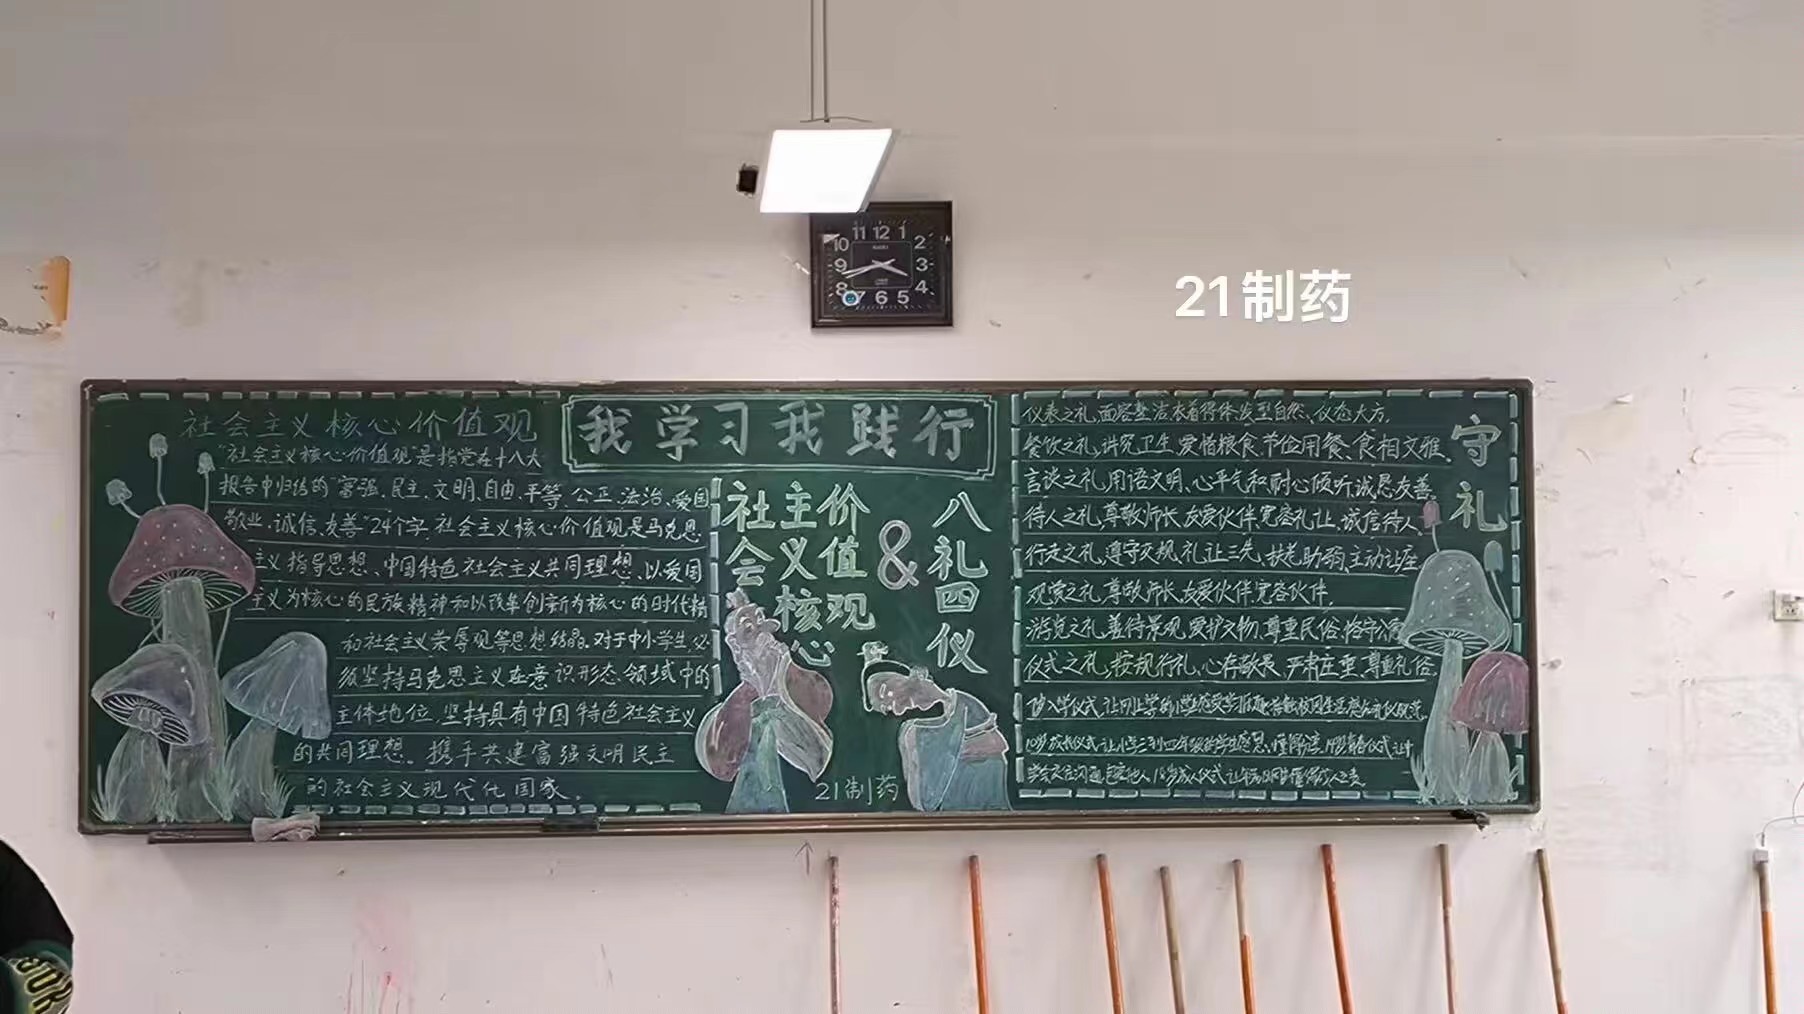 11 12 1
10 2
9 3
8 4
7 6 5
21制药
社会主义核心价值观
"社会主义核心价值观"是指党在十八大
报告中归结的"富强、民主、文明、自由、平等、公正、法治、爱国
敬业、诚信、友善"24个字.社会主义核心价值观是马克思
主义指导思想、中国特色社会主义共同理想、以爱国
主义为核心的民族精神和以改革创新为核心的时代精
和社会主义荣辱观等思想结晶.对于中小学生,必
须坚持马克思主义在意识形态领域中的
主体地位.坚持具有中国特色社会主义
的共同理想。携手共建富强文明民主
的社会主义现代化国家。
我学习我践行
社会主义核心价值观
&
八礼四仪
21制药
守礼
仪表之礼,面容整洁衣着得体发型自然、仪态大方.
餐饮之礼,讲究卫生,爱惜粮食.节俭用餐、食相文雅、
言谈之礼,用语文明、心平气和,耐心倾听,诚恳友善.
待人之礼,尊敬师长,友爱伙伴,宽容礼让、诚信待人.
行走之礼,遵守交规,礼让三先,扶老助弱,主动让座
观赏之礼,尊敬师长,友爱伙伴,宽容伙伴.
游览之礼,善待景观,爱护文物,尊重民俗,恪守公
仪式之礼,按规行礼、心存敬畏、严肃庄重,尊重礼俗,
7岁入学仪式,让刚上学的小学
10岁成长仪式
18岁成人仪式